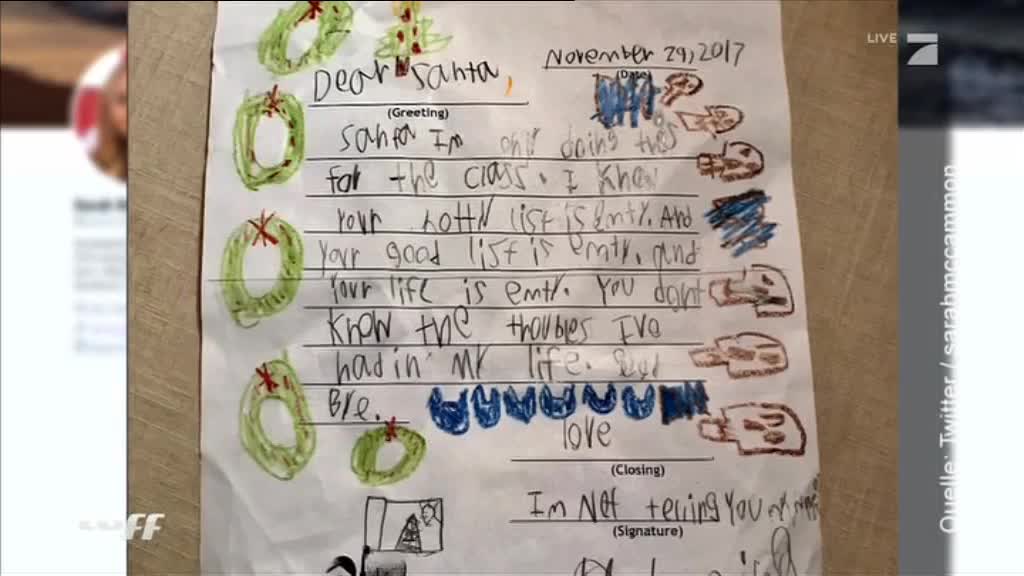 LIVE 7
November 29, 2017
(Date)
Dear Santa,
(Greeting)
Santa Im only doing this
for the class. I know
Your notty list is emty. And
Your good list is emty. and
Your life is emty. You dont
know the troubles Ive
had in my life. Good
Bye.
love
(Closing)
Im Not telling you my name
(Signature)
Quelle: Twitter / sarahmccammon